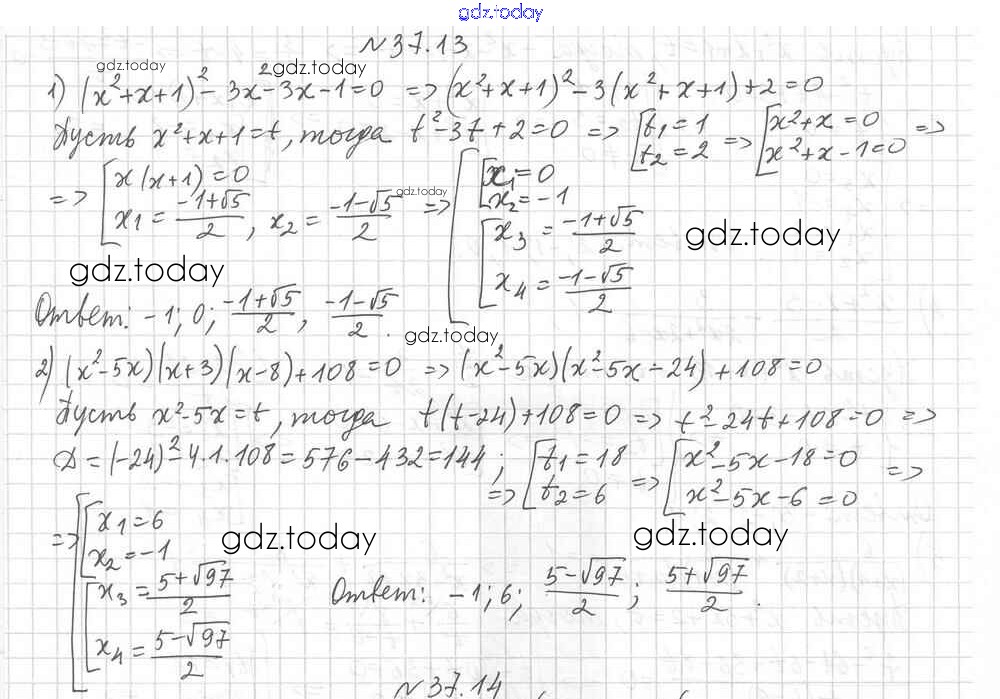 gdz.today
№37.13
gdz.today gdz.today
1) (x²+x+1)² - 3x² - 3x - 1 = 0 => (x²+x+1)² - 3(x²+x+1) + 2 = 0
Пусть x²+x+1=t, тогда t²-3t+2=0 => [t₁=1 t₂=2 => [x²+x=0 x²+x-1=0 =>
=> [x(x+1)=0 x₁ = (-1+√5)/2, x₂ = (-1-√5)/2 gdz.today => [[x₁=0 x₂=-1 [x₃ = (-1+√5)/2 x₄ = (-1-√5)/2
gdz.today gdz.today
Ответ: -1; 0; (-1+√5)/2, (-1-√5)/2.
gdz.today
2) (x²-5x)(x+3)(x-8)+108=0 => (x²-5x)(x²-5x-24)+108=0
Пусть x²-5x=t, тогда t(t-24)+108=0 => t²-24t+108=0 =>
D=(-24)²-4.1.108=576-432=144; => [t₁=18 t₂=6 => [x²-5x-18=0 x²-5x-6=0 =>
=> [[x₁=6 x₂=-1 [x₃ = (5+√97)/2 x₄ = (5-√97)/2
gdz.today gdz.today
Ответ: -1; 6; (5-√97)/2; (5+√97)/2.
№37.14